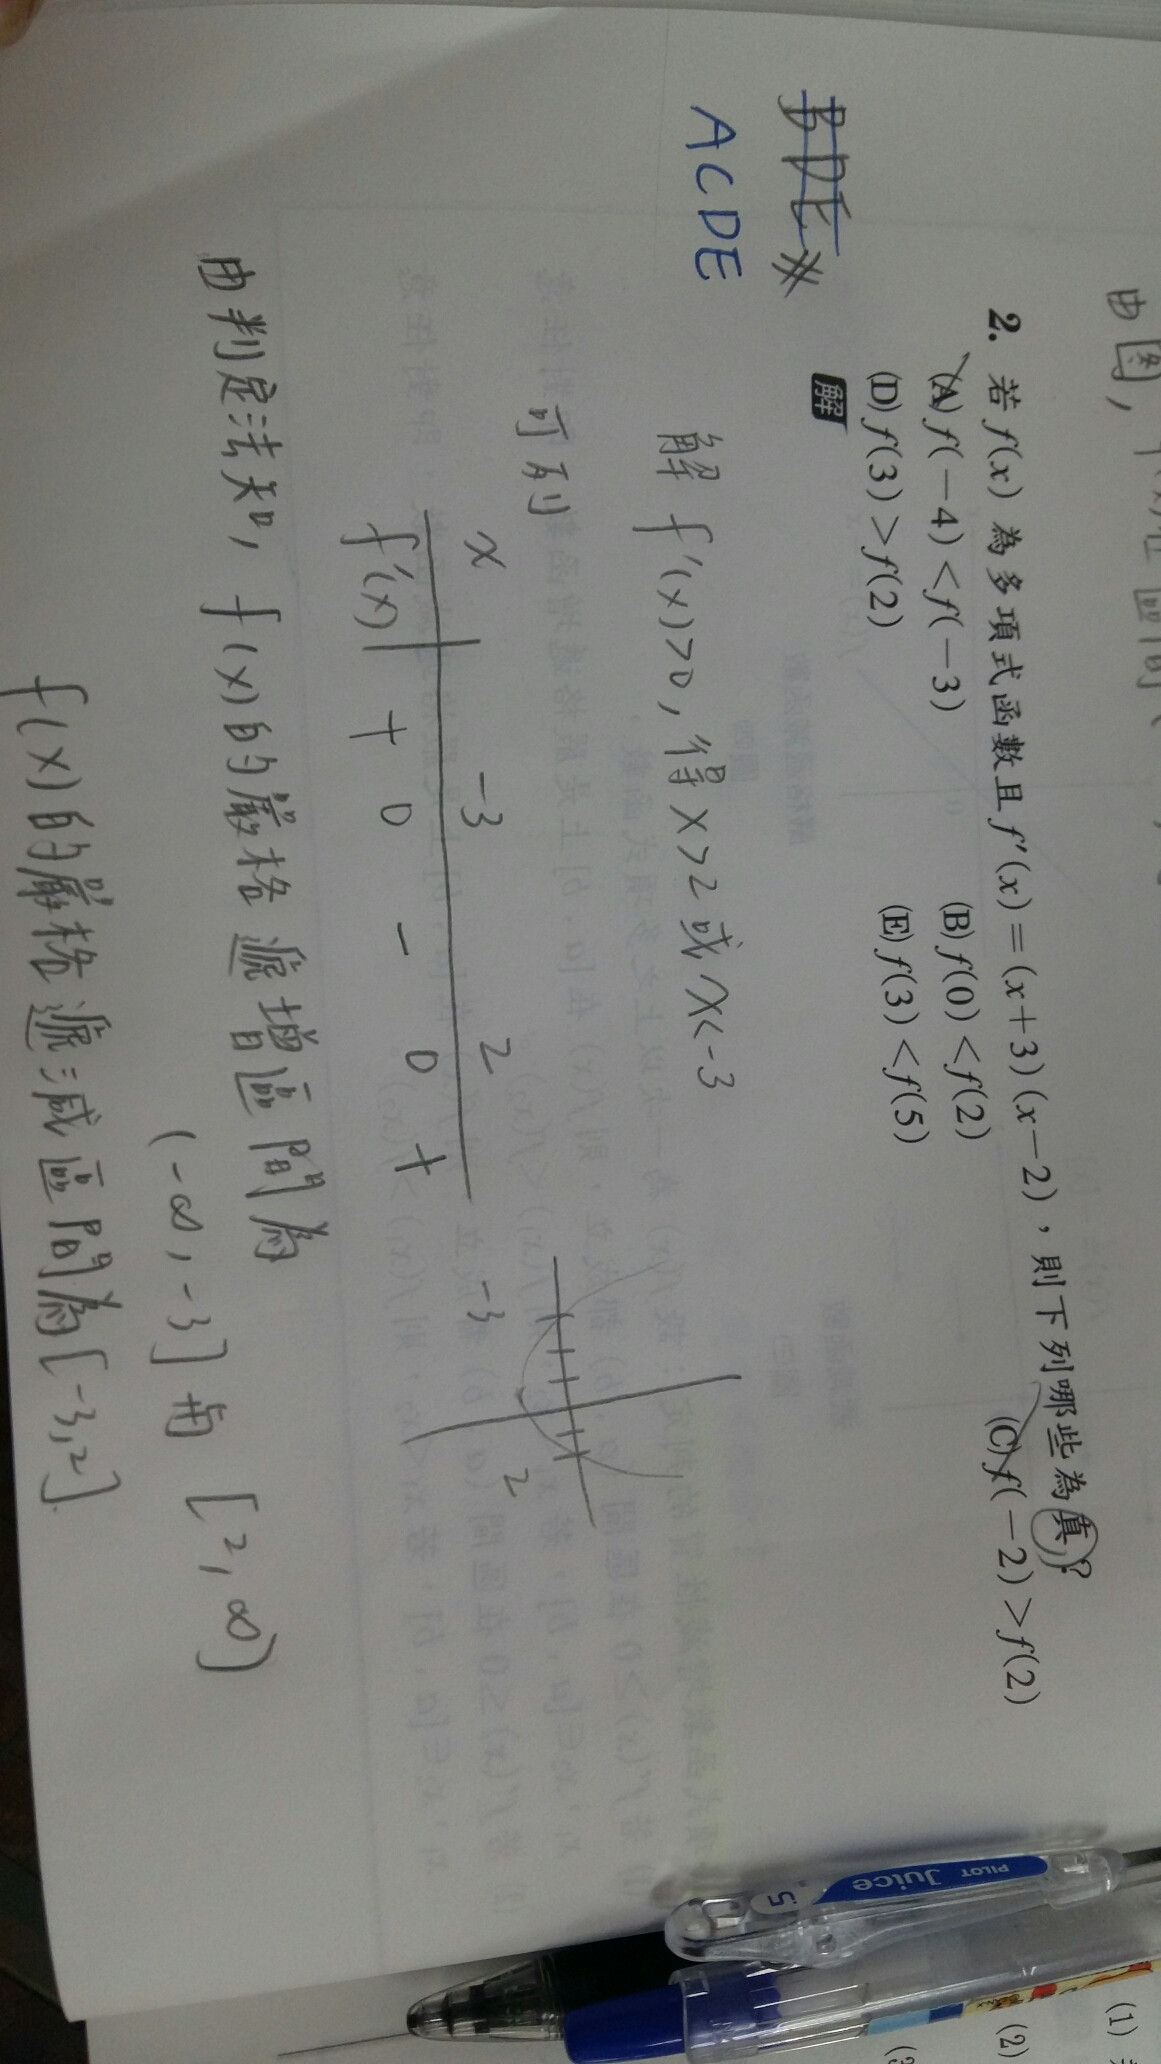 由图，
2. 若 f(x) 為多項式函數且 f′(x)＝(x＋3)(x－2)，則下列哪些為真?
(A) f(－4)＜f(－3) (B) f(0)＜f(2) (C) f(－2)＞f(2)
(D) f(3)＞f(2) (E) f(3)＜f(5)
解
BDE
ACDE
解 f'(x)>0, 得 x>2 或 x<-3
可列
x -3 2
f'(x) + 0 - 0 +
-3 2
由判定法知, f(x)的嚴格遞增區間為
(-∞,-3] 與 [2,∞)
f(x)的嚴格遞減區間為[-3,2].
PILOT Juice
(1)
(2)